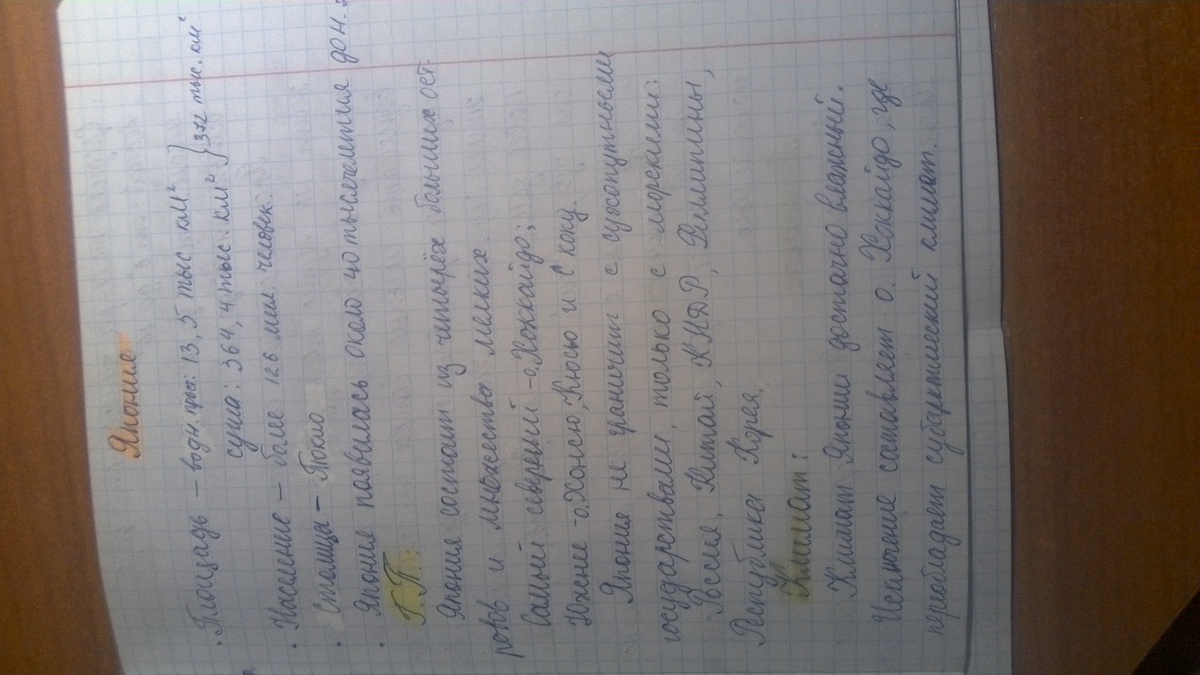 Япония
· Площадь – водн. прост: 13,5 тыс км²
суша: 364,4 тыс. км² } 372 тыс. км²
· Население – более 126 мил. человек.
· Столица – Токио
· Япония появилась около 40 тысячелетия до н.э
Г.П.:
Япония состоит из четырёх больших ост
ровов и множества мелких
Самый северный – о.Хоккайдо;
Южнее – о.Хонсю, Кюсю и Сикоку.
Япония не граничит с сухопутными
государствами, только с морскими:
Россия, Китай, КНДР, Филиппины,
Республика Корея.
Климат:
Климат Японии достачно влажный.
Исключение составляет о. Хоккайдо, где
переобладает субарктический климат.